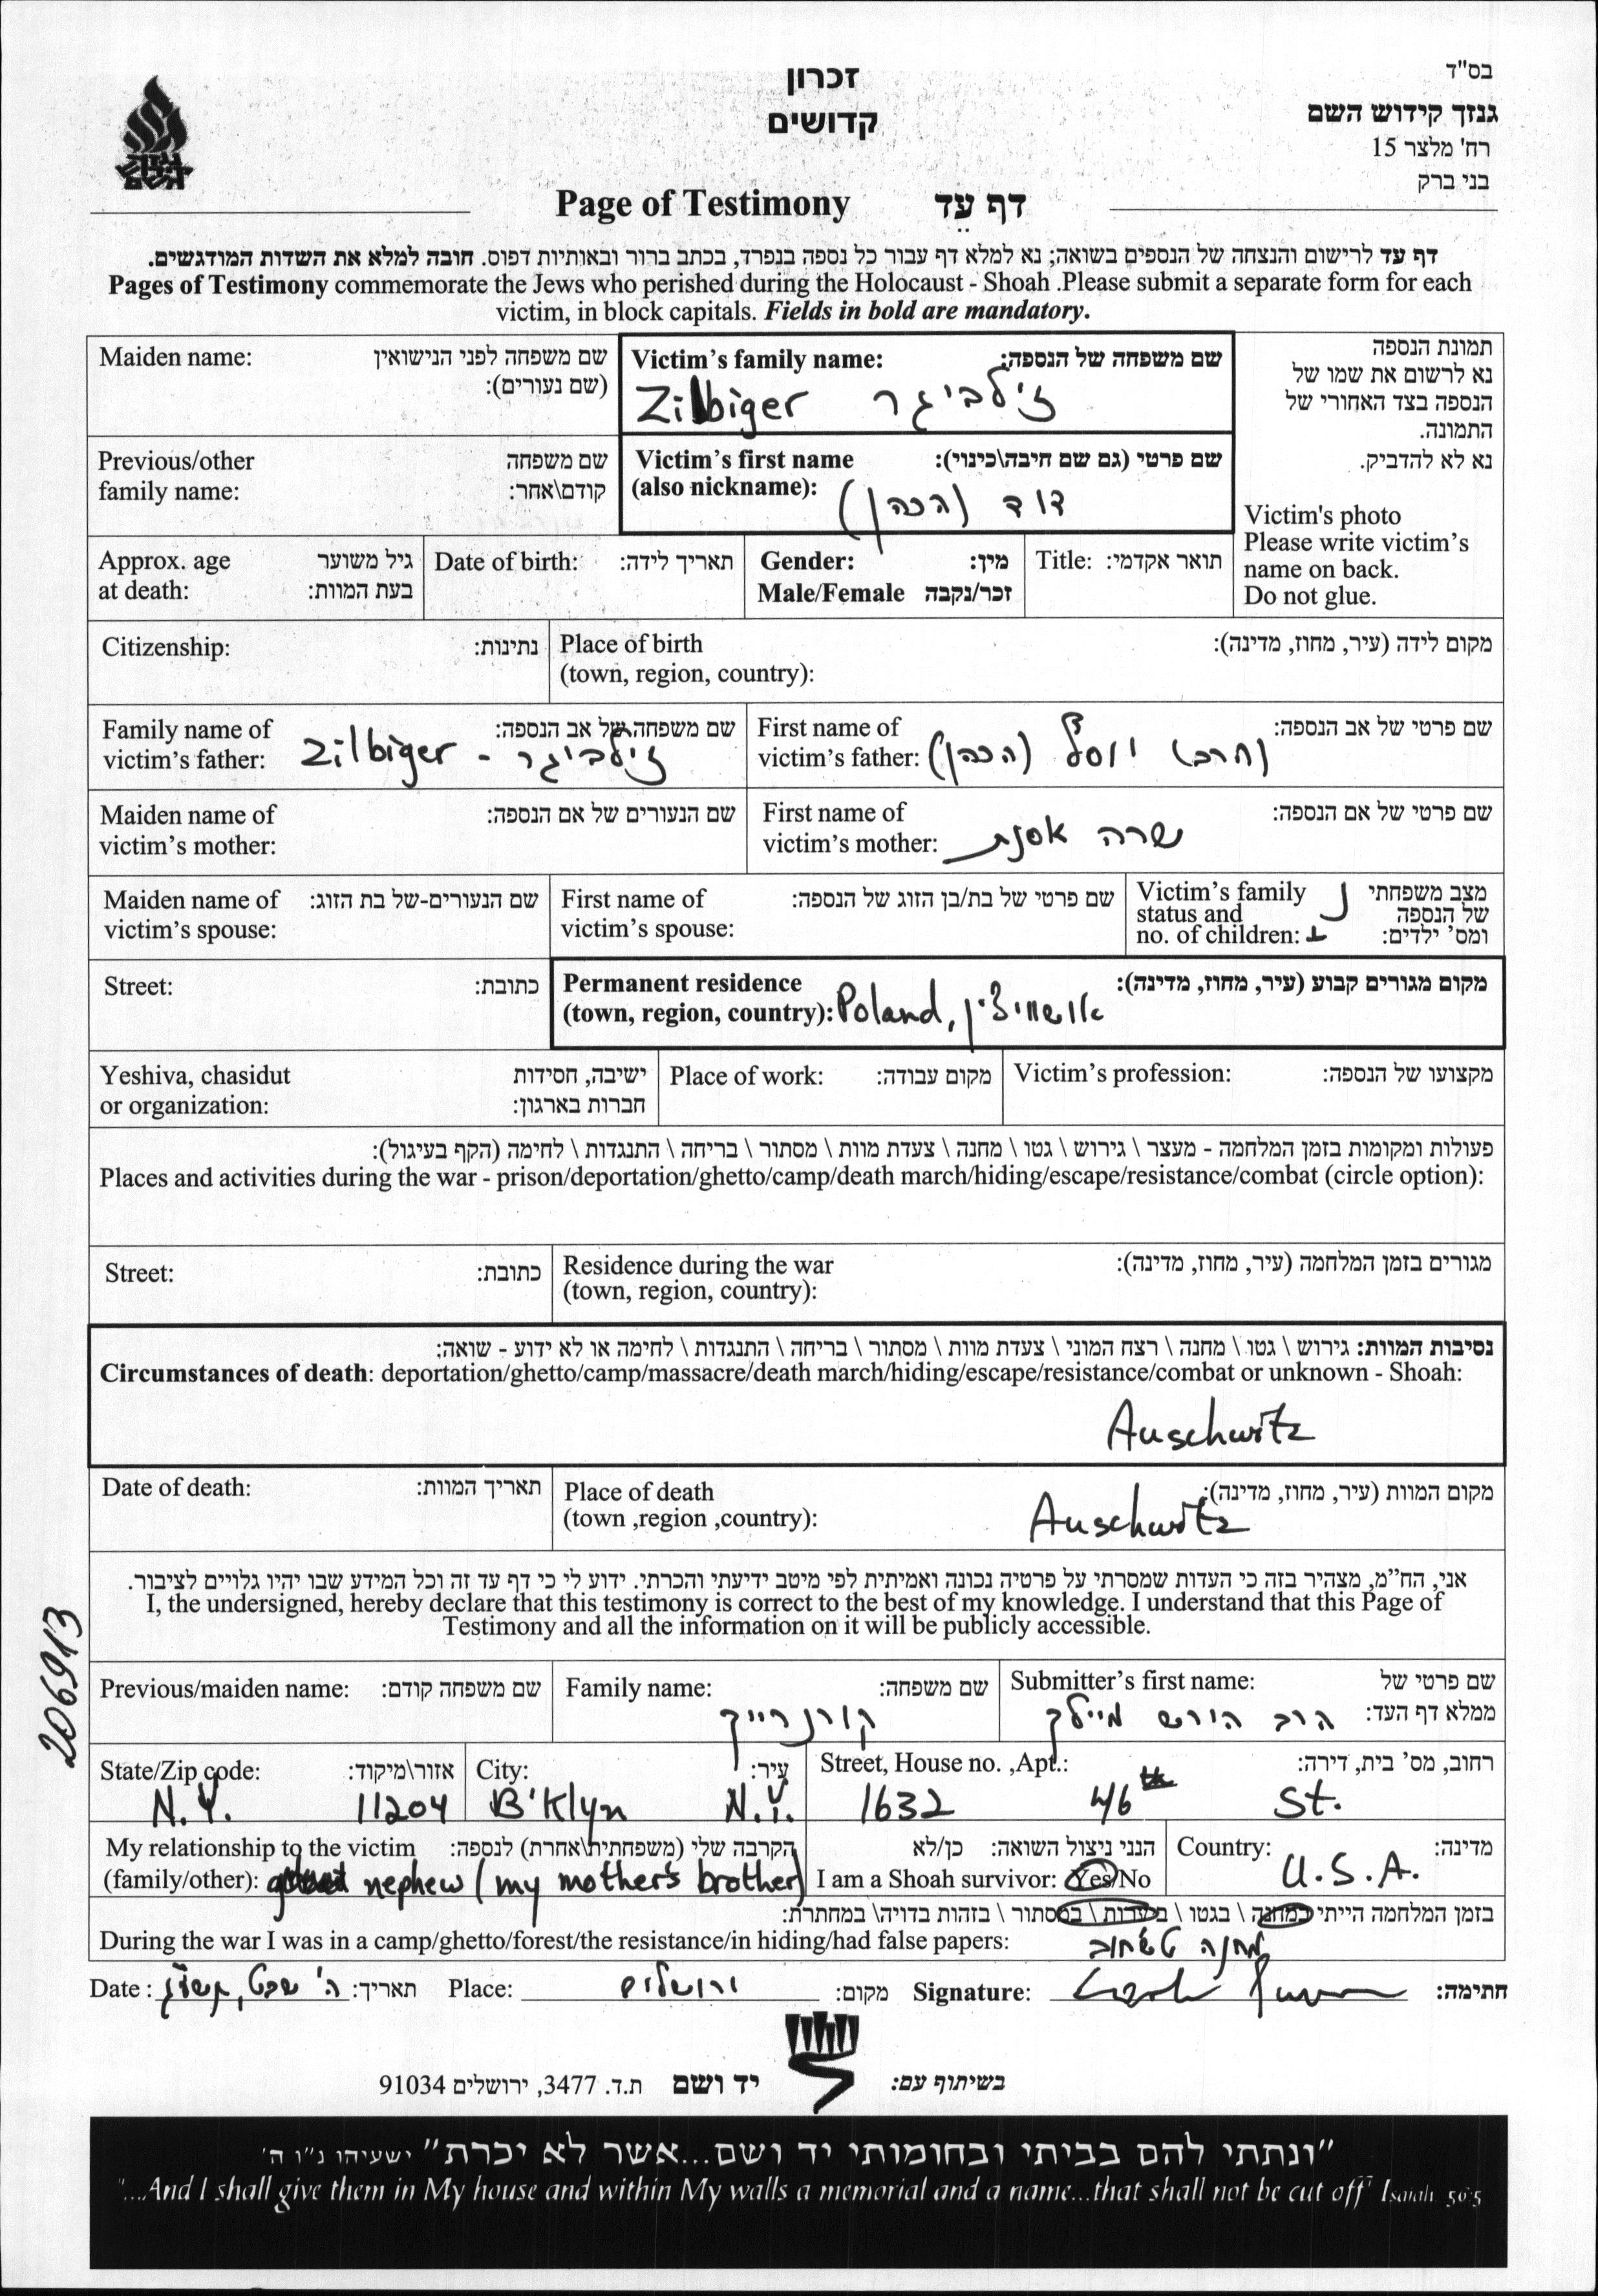 בס"ד
גנזך קידוש השם
רח' מלצר 15
בני ברק
זכרון
קדושים
Page of Testimony דף עֵד
דף עד לרישום והנצחה של הנספים בשואה; נא למלא דף עבור כל נספה בנפרד, בכתב ברור ובאותיות דפוס. חובה למלא את השדות המודגשים.
Pages of Testimony commemorate the Jews who perished during the Holocaust - Shoah .Please submit a separate form for each
victim, in block capitals. Fields in bold are mandatory.
Maiden name: שם משפחה לפני הנישואין
(שם נעורים):
Victim's family name: שם משפחה של הנספה:
Zilbiger זילביגר
תמונת הנספה
נא לרשום את שמו של
הנספה בצד האחורי של
התמונה.
נא לא להדביק.
Victim's photo
Please write victim's
name on back.
Do not glue.
Previous/other שם משפחה
family name: קודם\אחר:
Victim's first name שם פרטי (גם שם חיבה\כינוי):
(also nickname): דוד (הכהן)
Approx. age גיל משוער
at death: בעת המוות:
Date of birth: תאריך לידה:
Gender: מין:
Male/Female זכר/נקבה
Title: תואר אקדמי:
Citizenship: נתינות:
Place of birth מקום לידה (עיר, מחוז, מדינה):
(town, region, country):
Family name of שם משפחה של אב הנספה:
victim's father: Zilbiger - זילביגר
First name of שם פרטי של אב הנספה:
victim's father: (הרב) יוסף (הכהן)
Maiden name of שם הנעורים של אם הנספה:
victim's mother:
First name of שם פרטי של אם הנספה:
victim's mother: שרה אסנת
Maiden name of שם הנעורים-של בת הזוג:
victim's spouse:
First name of שם פרטי של בת/בן הזוג של הנספה:
victim's spouse:
Victim's family מצב משפחתי
status and של הנספה
no. of children: ומס' ילדים:
Street: כתובת:
Permanent residence מקום מגורים קבוע (עיר, מחוז, מדינה):
(town, region, country): Poland, אושוויצין
Yeshiva, chasidut ישיבה, חסידות
or organization: חברות בארגון:
Place of work: מקום עבודה:
Victim's profession: מקצועו של הנספה:
פעולות ומקומות בזמן המלחמה - מעצר \ גירוש \ גטו \ מחנה \ צעדת מוות \ מסתור \ בריחה \ התנגדות \ לחימה (הקף בעיגול):
Places and activities during the war - prison/deportation/ghetto/camp/death march/hiding/escape/resistance/combat (circle option):
Street: כתובת:
Residence during the war מגורים בזמן המלחמה (עיר, מחוז, מדינה):
(town, region, country):
נסיבות המוות: גירוש \ גטו \ מחנה \ רצח המוני \ צעדת מוות \ מסתור \ בריחה \ התנגדות \ לחימה או לא ידוע - שואה:
Circumstances of death: deportation/ghetto/camp/massacre/death march/hiding/escape/resistance/combat or unknown - Shoah:
Auschwitz
Date of death: תאריך המוות:
Place of death מקום המוות (עיר, מחוז, מדינה):
(town ,region ,country): Auschwitz
אני, הח"מ, מצהיר בזה כי העדות שמסרתי על פרטיה נכונה ואמיתית לפי מיטב ידיעתי והכרתי. ידוע לי כי דף עד זה וכל המידע שבו יהיו גלויים לציבור.
I, the undersigned, hereby declare that this testimony is correct to the best of my knowledge. I understand that this Page of
Testimony and all the information on it will be publicly accessible.
206913
Previous/maiden name: שם משפחה קודם:
Family name: שם משפחה:
קורנרייך
Submitter's first name: שם פרטי של
ממלא דף העד: הרב הירש מיילך
State/Zip code: אזור\מיקוד:
N.Y. 11204
City: עיר:
B'Klyn N.Y.
Street, House no. ,Apt.: רחוב, מס' בית, דירה:
1632 46th St.
My relationship to the victim הקרבה שלי (משפחתית\אחרת) לנספה:
(family/other): nephew (my mother's brother)
הנני ניצול השואה: כן/לא
I am a Shoah survivor: Yes/No
Country: מדינה:
U.S.A.
בזמן המלחמה הייתי במחנה \ בגטו \ ביערות \ במסתור \ בזהות בדויה\ במחתרת:
During the war I was in a camp/ghetto/forest/the resistance/in hiding/had false papers: מחנה
Date : ה' שבט, תאריך: Place: ירושלים מקום: Signature: חתימה:
בשיתוף עם: יד ושם ת.ד. 3477, ירושלים 91034
"ונתתי להם בביתי ובחומותי יד ושם...אשר לא יכרת" ישעיהו נ"ו ה'
"...And I shall give them in My house and within My walls a memorial and a name...that shall not be cut off" Isaiah 56:5